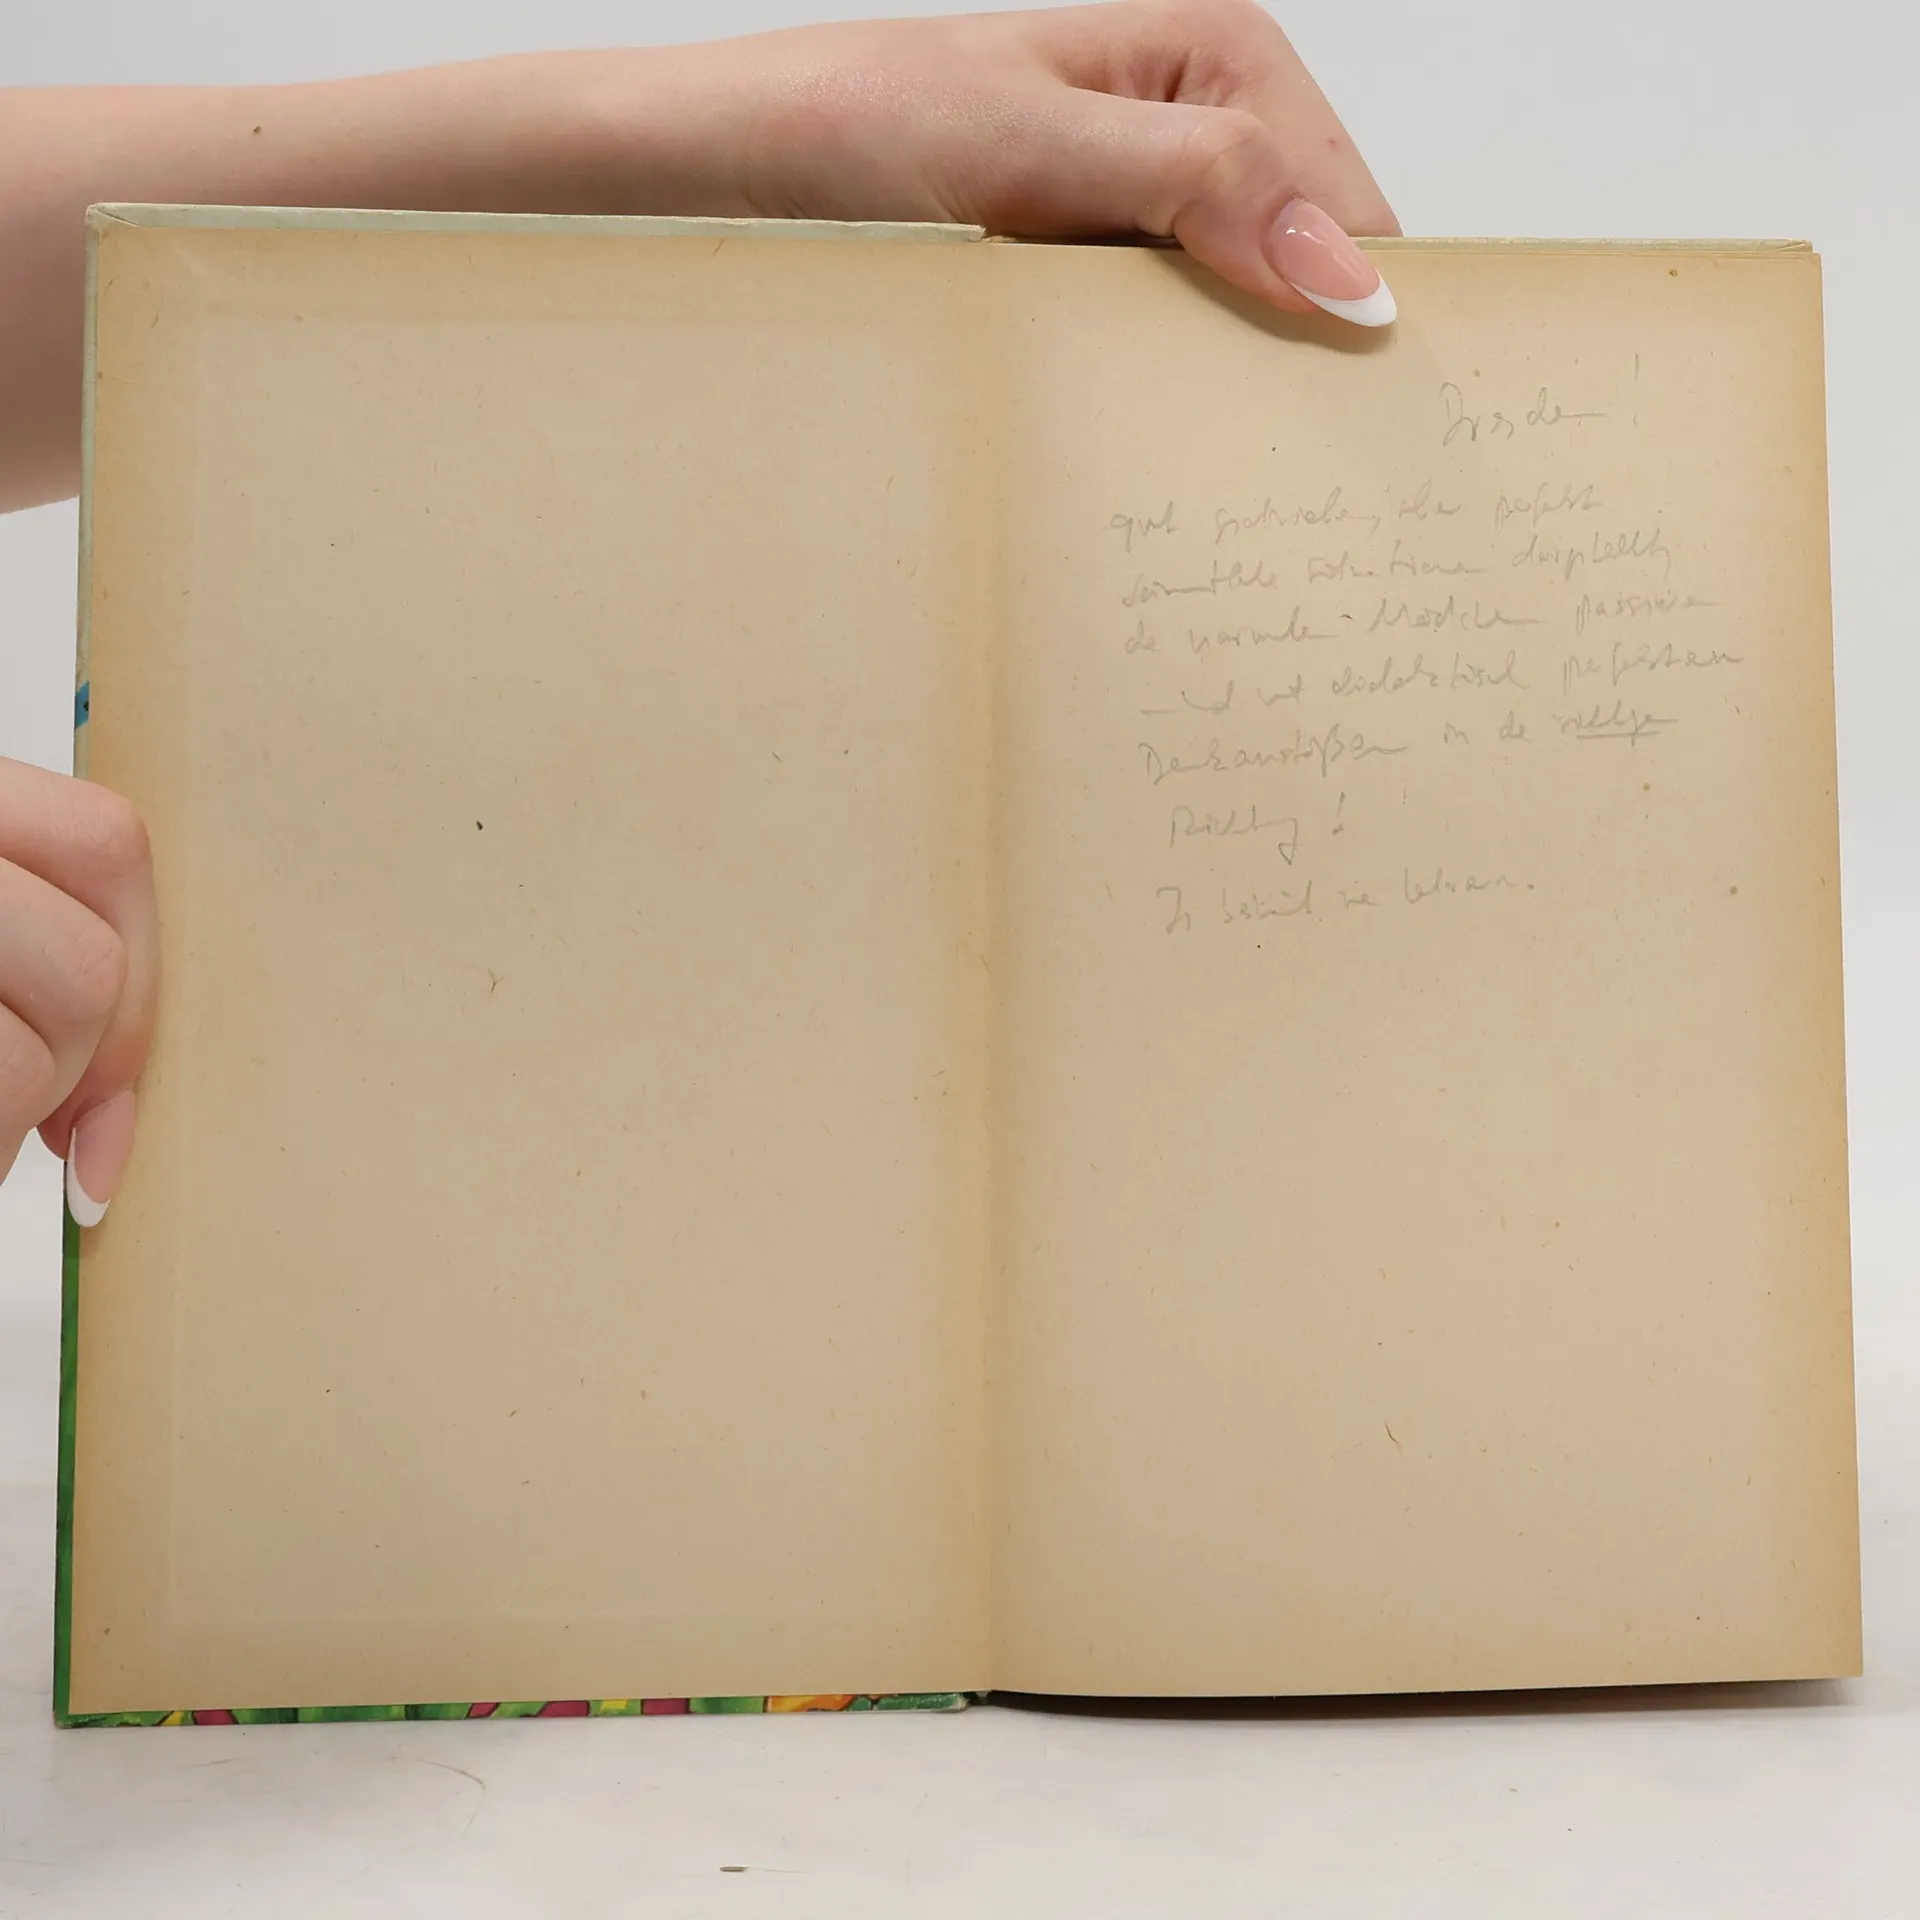 Dresden!
gut geschrieben, aber perfekt
sämtliche Situationen dargestellt,
die normalen Mädchen passieren
und mit didaktisch perfekten
Denkanstößen in die richtige
Richtung!
zu lehren.